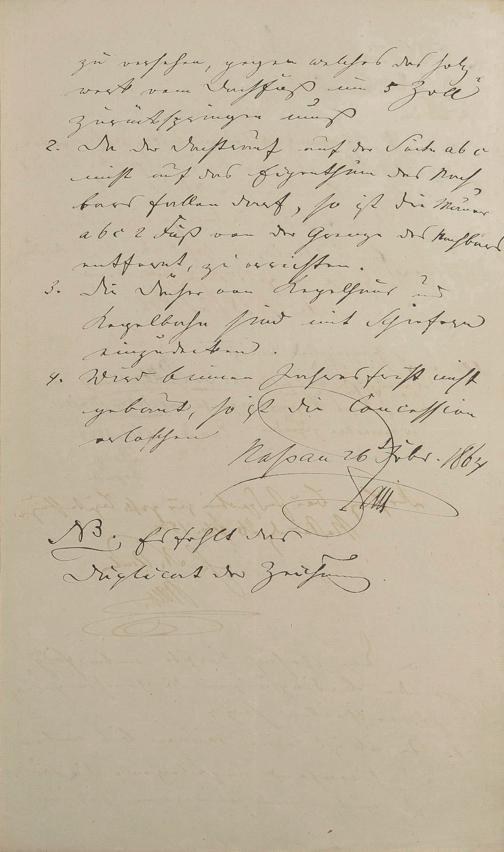 zu versehen, gegen welches das Holz-
werk vom Dachfuß um 5 Zoll
zurückspringen muß
2. Da der Dachtrauf auf der Seite a b c
nicht auf das Eigenthum des Nach-
bars fallen darf, so ist die Mauer
a b c 2 Fuß von der Grenze des Nachbars
entfernt, zu errichten.
3. Die Dächer von Kegelhaus und
Kegelbahn sind mit Schiefern
einzudecken.
4. Wird binnen Jahresfrist nicht
gebaut, so ist die Concession
erloschen
Nassau 26 Febr. 1864
NB. Es fehlt das
Duplicat der Zeichnung